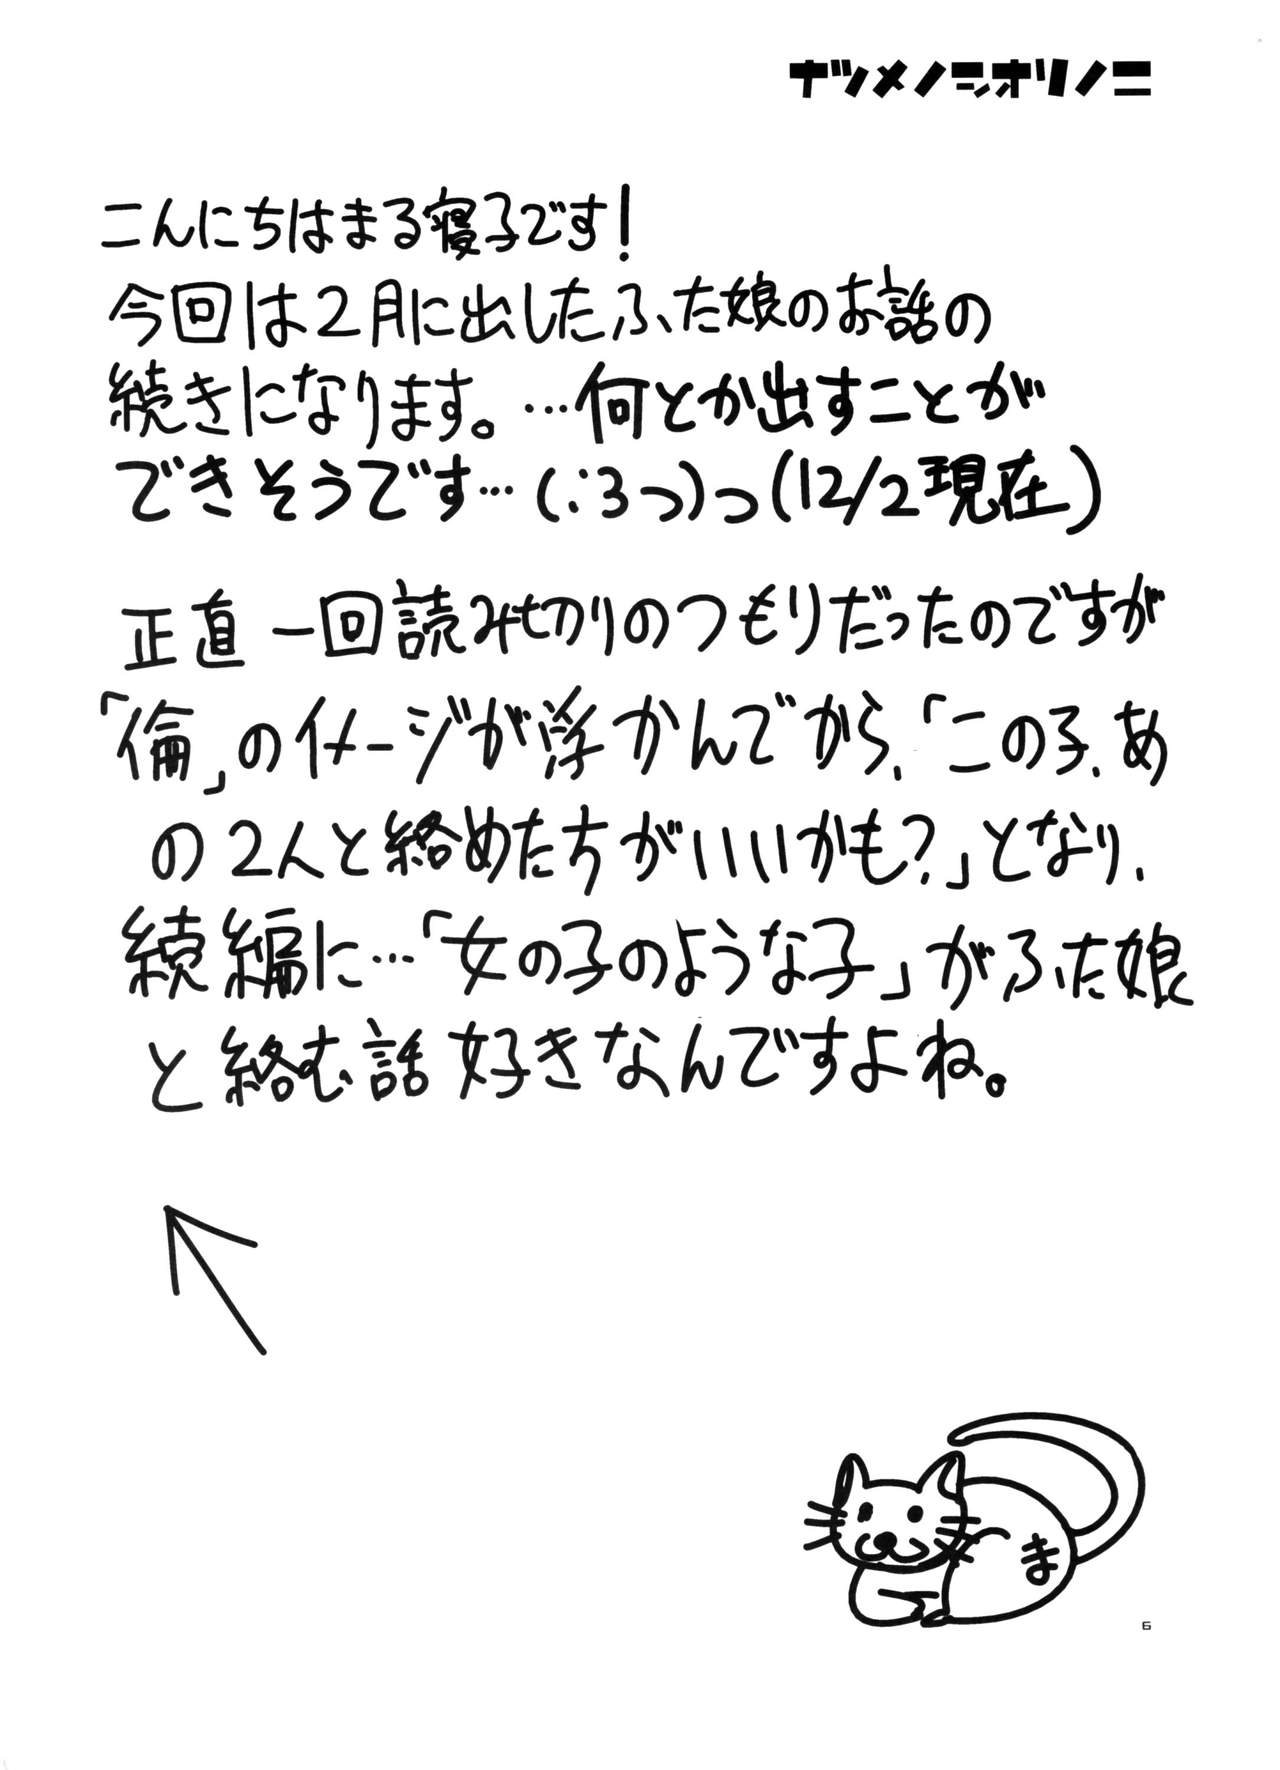 ナツメノシオリノニ
こんにちはまる寝子です!
今回は2月に出したふた娘のお話の
続きになります。…何とか出すことが
できそうです…(:3っ)っ(12/2現在)
正直一回読み切りのつもりだったのですが
「倫」のイメージが浮かんでから、「この子、あ
の2人と絡めたちがいいかも?」となり、
続編に…「女の子のような子」がふた娘
と絡む話好きなんですよね。
ま
6